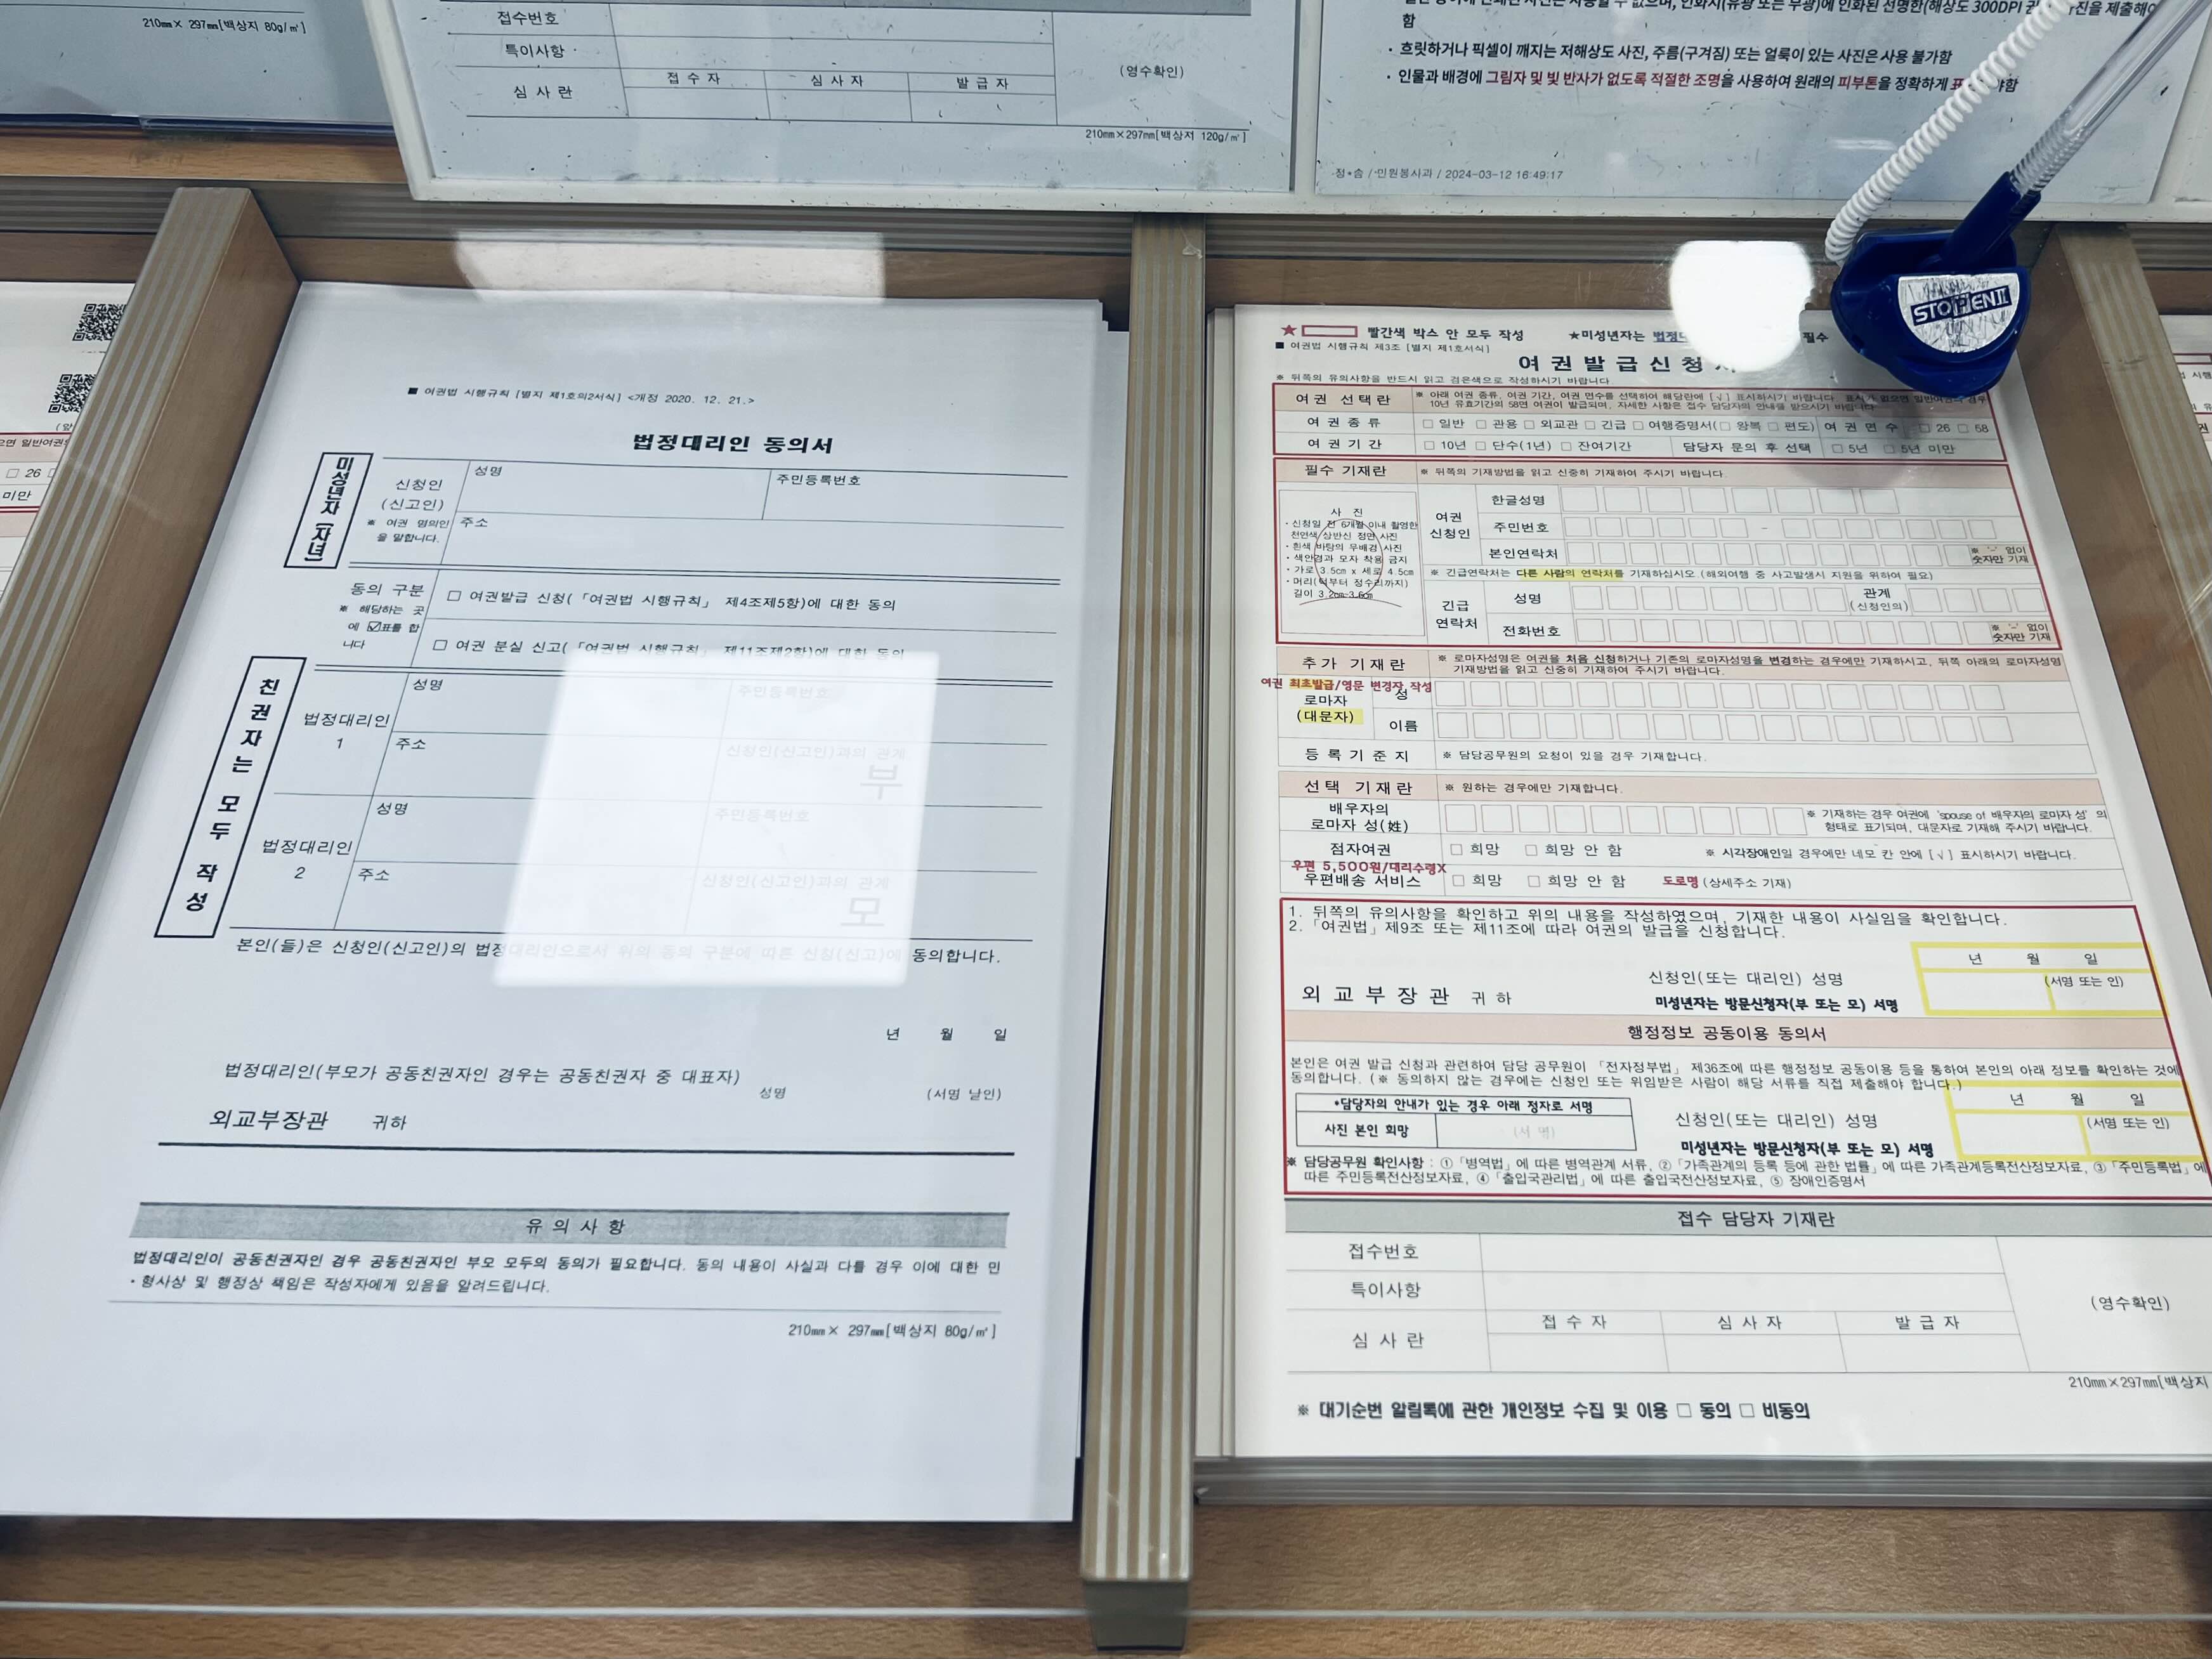 210mm× 297mm[백상지 80g/㎡]
접수번호
특이사항
심 사 란
접 수 자
심 사 자
발 급 자
(영수확인)
210mm×297mm[백상지 120g/㎡]
함
· 흐릿하거나 픽셀이 깨지는 저해상도 사진, 주름(구겨짐) 또는 얼룩이 있는 사진은 사용 불가함
· 인물과 배경에 그림자 및 빛 반사가 없도록 적절한 조명을 사용하여 원래의 피부톤을 정확하게
민원봉사과 / 2024-03-12 16:49:17
STOPPEN II
■ 여권법 시행규칙 [별지 제1호의2서식] <개정 2020. 12. 21.>
법정대리인 동의서
미성년자 (자녀)
신청인
(신고인)
※ 여권 명의인
을 말합니다.
성명
주민등록번호
주소
동의 구분
※ 해당하는 곳
에 ☑표를 합
니다
□ 여권발급 신청(「여권법 시행규칙」 제4조제5항)에 대한 동의
□ 여권 분실 신고(「여권법 시행규칙」 제11조제2항)에 대한 동의
친권자는 모두 작성
법정대리인
1
성명
주민등록번호
주소
신청인(신고인)과의 관계
부
법정대리인
2
성명
주민등록번호
주소
신청인(신고인)과의 관계
모
본인(들)은 신청인(신고인)의 법정대리인으로서 위의 동의 구분에 따른 신청(신고)에 동의합니다.
년 월 일
법정대리인(부모가 공동친권자인 경우는 공동친권자 중 대표자)
성명 (서명 날인)
외교부장관 귀하
유 의 사 항
법정대리인이 공동친권자인 경우 공동친권자인 부모 모두의 동의가 필요합니다. 동의 내용이 사실과 다를 경우 이에 대한 민
· 형사상 및 행정상 책임은 작성자에게 있음을 알려드립니다.
210mm× 297mm[백상지 80g/㎡]
★ 빨간색 박스 안 모두 작성 ★미성년자는 필수
■ 여권법 시행규칙 제3조 [별지 제1호서식]
여 권 발 급 신 청
※ 뒤쪽의 유의사항을 반드시 읽고 검은색으로 작성하시기 바랍니다.
여권 선택란
※ 아래 여권 종류, 여권 기간, 여권 면수를 선택하여 해당란에 [√] 표시하시기 바랍니다. 표시가 없으면 일반여권의 경우
10년 유효기간의 58면 여권이 발급되며, 자세한 사항은 접수 담당자의 안내를 받으시기 바랍니다
여 권 종 류 □ 일반 □ 관용 □ 외교관 □ 긴급 □ 여행증명서(□ 왕복 □ 편도) 여 권 면 수 □ 26 □ 58
여 권 기 간 □ 10년 □ 단수(1년) □ 잔여기간 담당자 문의 후 선택 □ 5년 □ 5년 미만
필수 기재란 ※ 뒤쪽의 기재방법을 읽고 신중히 기재하여 주시기 바랍니다.
사 진
· 신청일 전 6개월 이내 촬영한
천연색 상반신 정면 사진
· 흰색 바탕의 무배경 사진
· 색안경과 모자 착용 금지
· 가로 3.5cm x 세로 4.5cm
· 머리(턱부터 정수리까지)
길이 3.2cm-3.6cm
여권
신청인
한글성명
주민번호
본인연락처
※ '-' 없이
숫자만 기재
※ 긴급연락처는 다른 사람의 연락처를 기재하십시오 (해외여행 중 사고발생시 지원을 위하여 필요)
긴급
연락처
성명
관계
(신청인의)
전화번호
※ '-' 없이
숫자만 기재
추가 기재란
※ 로마자성명은 여권을 처음 신청하거나 기존의 로마자성명을 변경하는 경우에만 기재하시고, 뒤쪽 아래의 로마자성명
기재방법을 읽고 신중히 기재하여 주시기 바랍니다.
여권 최초발급/영문 변경자 작성
로마자
(대문자)
성
이름
등 록 기 준 지 ※ 담당공무원의 요청이 있을 경우 기재합니다.
선택 기재란 ※ 원하는 경우에만 기재합니다.
배우자의
로마자 성(姓)
※ 기재하는 경우 여권에 'spouse of 배우자의 로마자 성' 의
형태로 표기되며, 대문자로 기재해 주시기 바랍니다.
점자여권 □ 희망 □ 희망 안 함 ※ 시각장애인일 경우에만 네모 칸 안에 [√] 표시하시기 바랍니다.
우편 5,500원/대리수령X
우편배송 서비스 □ 희망 □ 희망 안 함 도로명 (상세주소 기재)
1. 뒤쪽의 유의사항을 확인하고 위의 내용을 작성하였으며, 기재한 내용이 사실임을 확인합니다.
2. 「여권법」제9조 또는 제11조에 따라 여권의 발급을 신청합니다.
년 월 일
신청인(또는 대리인) 성명 (서명 또는 인)
외 교 부 장 관 귀 하 미성년자는 방문신청자(부 또는 모) 서명
행정정보 공동이용 동의서
본인은 여권 발급 신청과 관련하여 담당 공무원이 「전자정부법」 제36조에 따른 행정정보 공동이용 등을 통하여 본인의 아래 정보를 확인하는 것에
동의합니다. (※ 동의하지 않는 경우에는 신청인 또는 위임받은 사람이 해당 서류를 직접 제출해야 합니다.)
년 월 일
*담당자의 안내가 있는 경우 아래 정자로 서명
사진 본인 희망 (서 명)
신청인(또는 대리인) 성명 (서명 또는 인)
미성년자는 방문신청자(부 또는 모) 서명
※ 담당공무원 확인사항 : ①「병역법」에 따른 병역관계 서류, ②「가족관계의 등록 등에 관한 법률」에 따른 가족관계등록전산정보자료, ③「주민등록법」에
따른 주민등록전산정보자료, ④「출입국관리법」에 따른 출입국전산정보자료, ⑤ 장애인증명서
접수 담당자 기재란
접수번호
특이사항
심 사 란
접 수 자
심 사 자
발 급 자
(영수확인)
210mm×297mm[백상지
※ 대기순번 알림톡에 관한 개인정보 수집 및 이용 □ 동의 □ 비동의